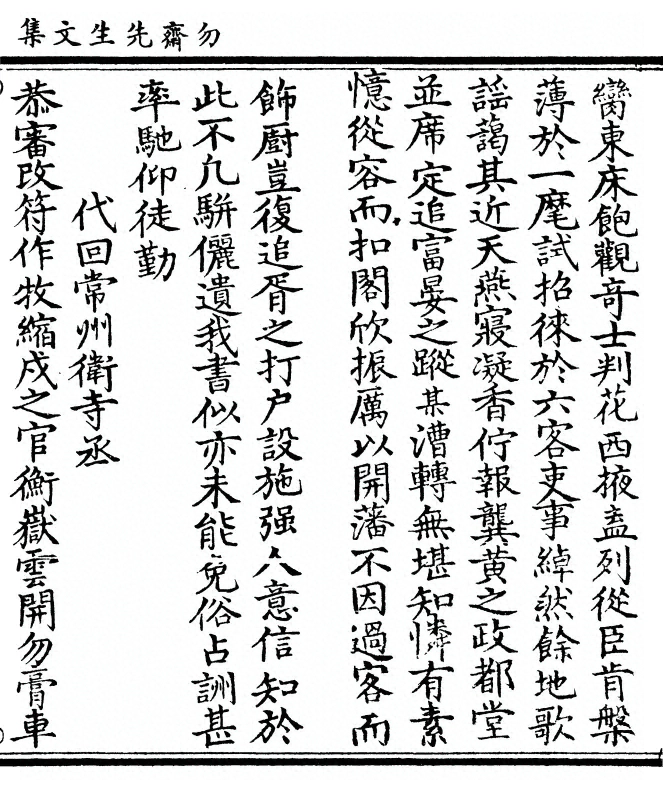 勿齋先生文集
臠東床飽觀奇士判花西掖盍列從臣肯槃
薄於一麾試招徠於六客吏事綽然餘地歌
謡藹其近天燕寢凝香佇報龔黄之政都堂
並席定追富晏之蹤某漕轉無堪知憐有素
憶從容而扣閣欣振厲以開藩不因過客而
飾厨豈復追胥之打户設施强人意信知於
此不凡駢儷遺我書似亦未能免俗占詶甚
率馳仰徒勤
代回常州衛寺丞
恭審改符作牧縮戍之官衡嶽雲開勿膏車